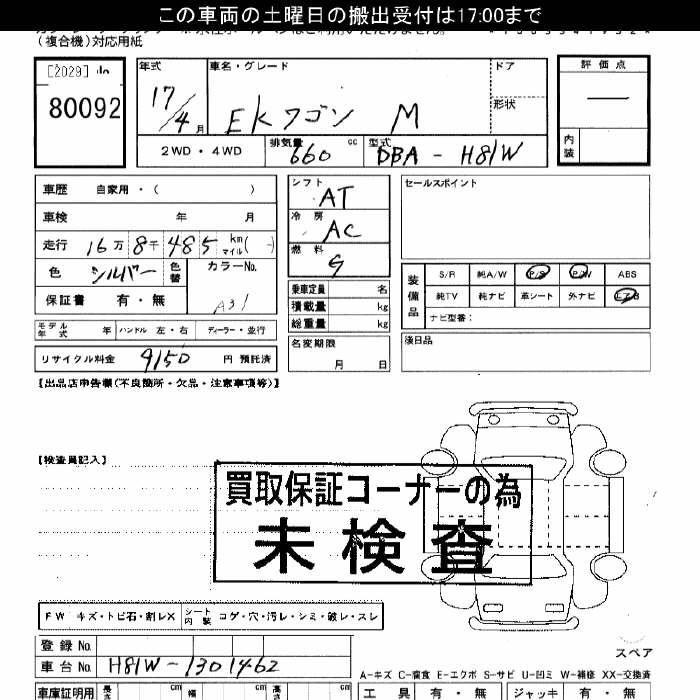 この車両の土曜日の搬出受付は17:00まで
(複合機)対応用紙
[2029]
80092
年式 車名・グレード ドア 評価点
17/4月 EKワゴン M 形状 —
2WD・4WD 排気量 660 cc 型式 DBA - H81W 内装
車歴 自家用・( )
シフト AT
セールスポイント
車検 年 月
冷房 AC
走行 16万8千485 km マイル( - )
燃料 G
色 シルバー 色替 カラーNo. A31
保証書 有・無
乗車定員 名
積載量 kg
総重量 kg
装備品 S/R 純A/W P/S P/W ABS
純TV 純ナビ 革シート 外ナビ エアB
ナビ型番:
モデル年式 年 ハンドル 左・右 ディーラー・並行
リサイクル料金 9150 円 預託済
名変期限 月 日
後日品
【出品店申告欄(不良箇所・欠品・注意事項等)】
【検査員記入】
買取保証コーナーの為
未検査
FW キズ・トビ石・割レX シート内装 コゲ・穴・汚レ・シミ・破レ・スレ
登録No.
車台No. H81W-1301462
スペア
A-キズ C-腐食 E-エクボ S-サビ U-凹ミ W-補修 XX-交換済
車庫証明用 長さ cm 幅 cm 高さ cm 工具 有・無 ジャッキ 有・無